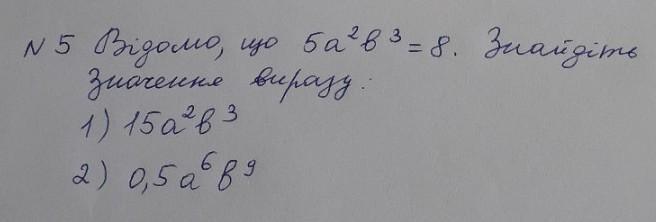 N 5 Відомо, що 5a²b³ = 8. Знайдіть
значення виразу:
1) 15a²b³
2) 0,5a⁶b⁹